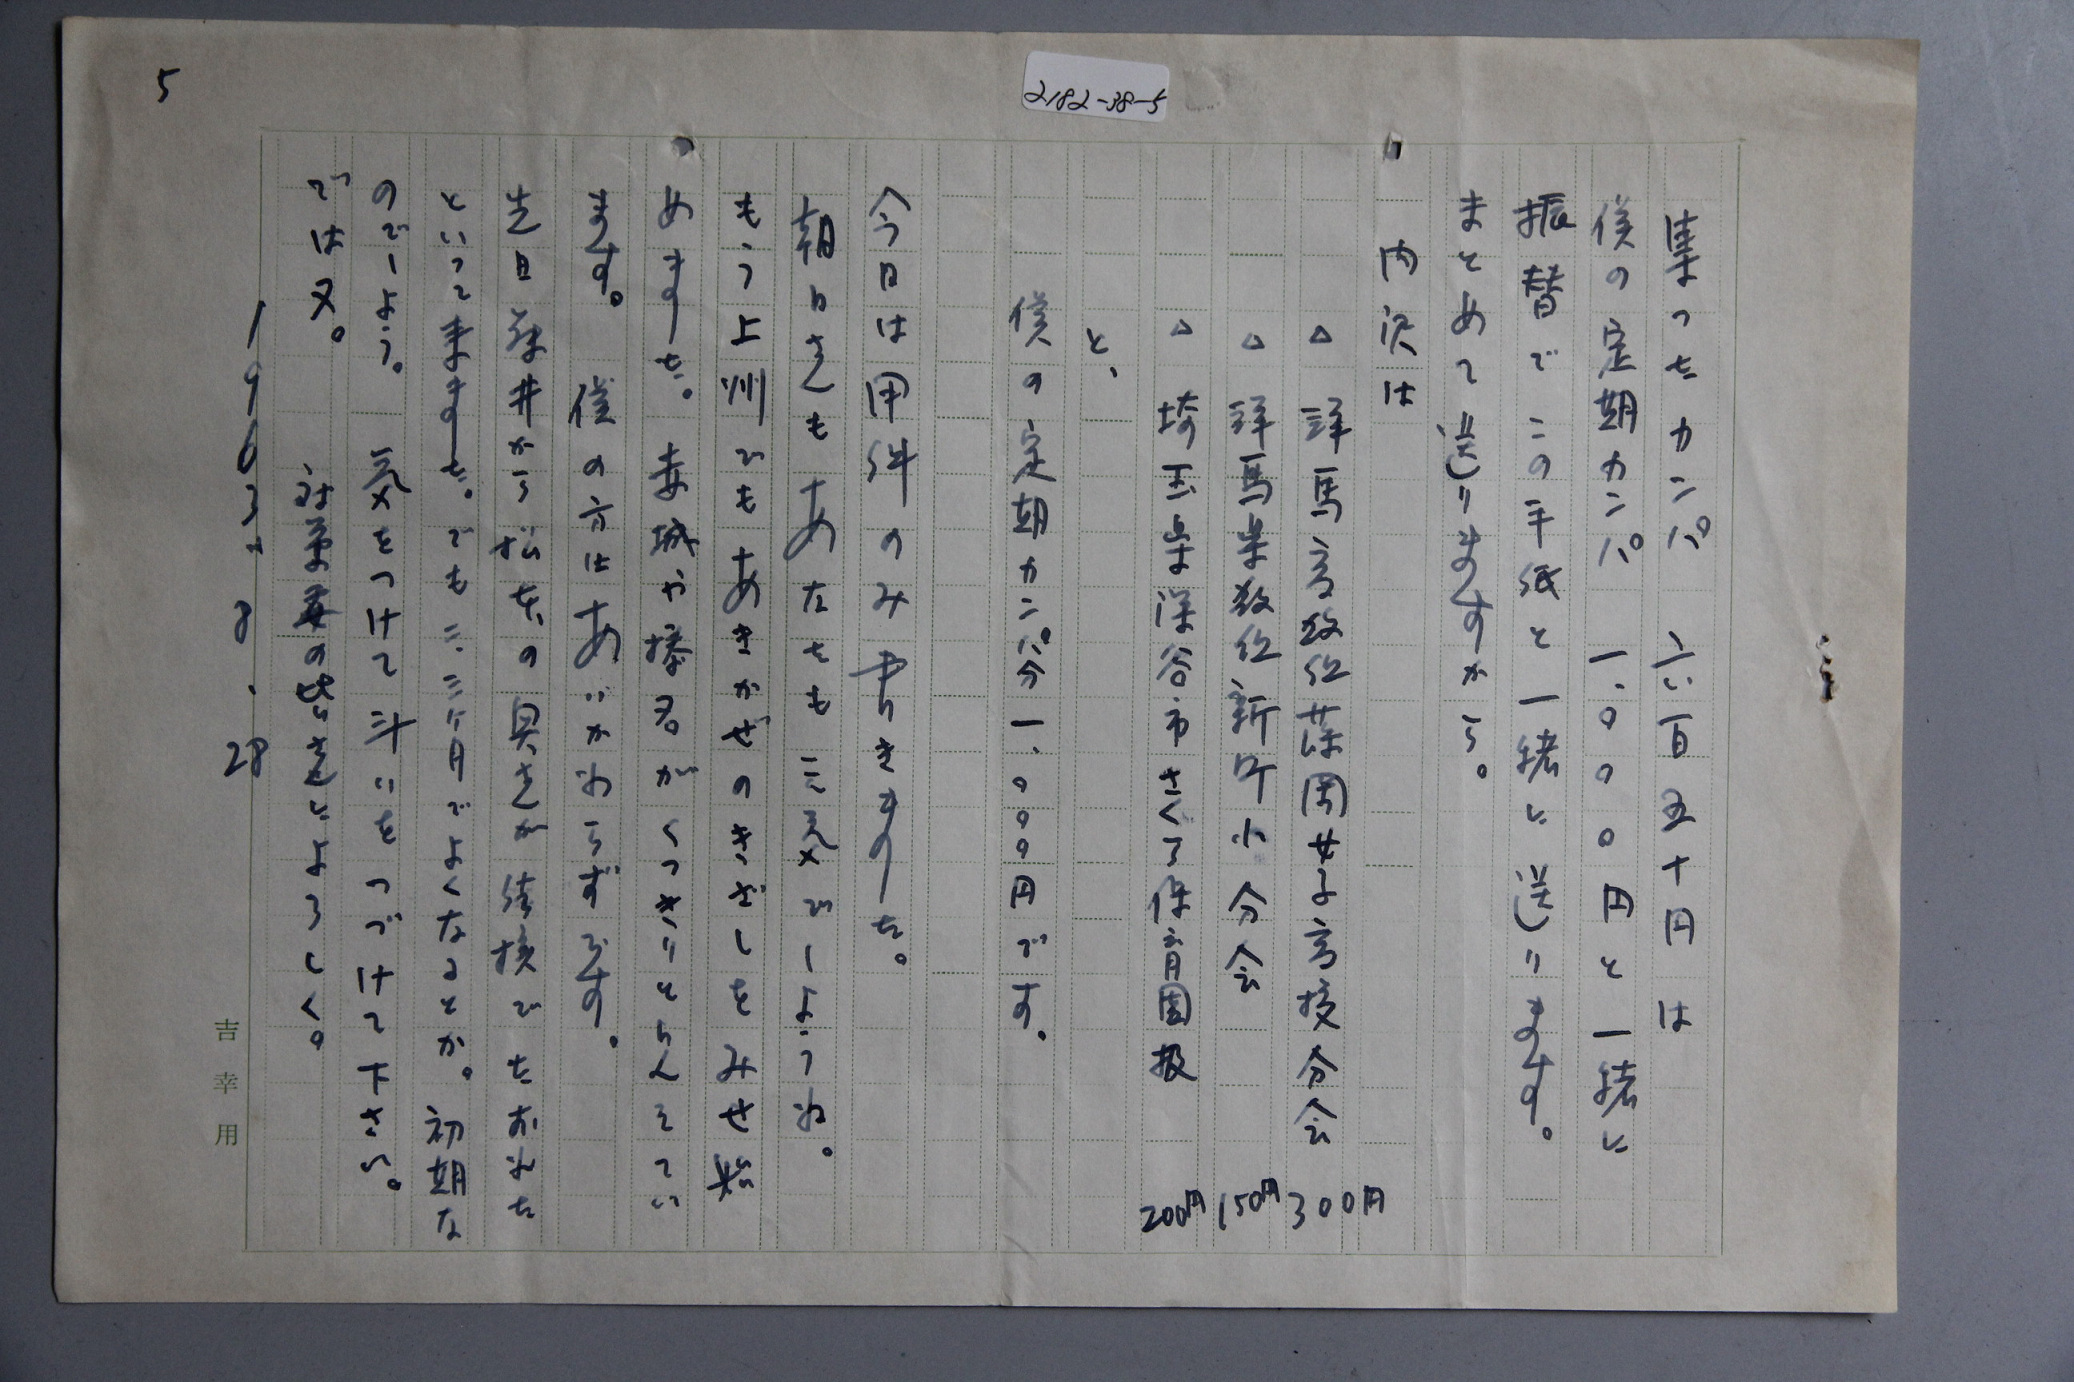 5
2182-38-5
集ったカンパ 六百五十円は
僕の定期カンパ 一、〇〇〇円と一緒に
振替でこの手紙と一緒に送ります。
まとめて送りますから。
内訳は
△ 群馬高教組藤岡女子高校分会 300円
△ 群馬県教組新町小分会 150円
△ 埼玉県深谷市さくら保育園扱 200円
と、
僕の定期カンパ分一、〇〇〇円です。
今日は用件のみ書きました。
朝日さんもあなたも元気でしょうね。
もう上州でもあきかぜのきざしをみせ始
めました。赤城や榛名がくっきりとうかんでい
ます。 僕の方はあいかわらずです。
先日 井から松本の奥さんが結核でたおれた
といって来ました。でも二、三ヶ月でよくなるとか。初期な
のでしょう。 気をつけて斗いをつづけて下さい。
では又。 の皆さんによろしく。
1963.8.28
吉幸用